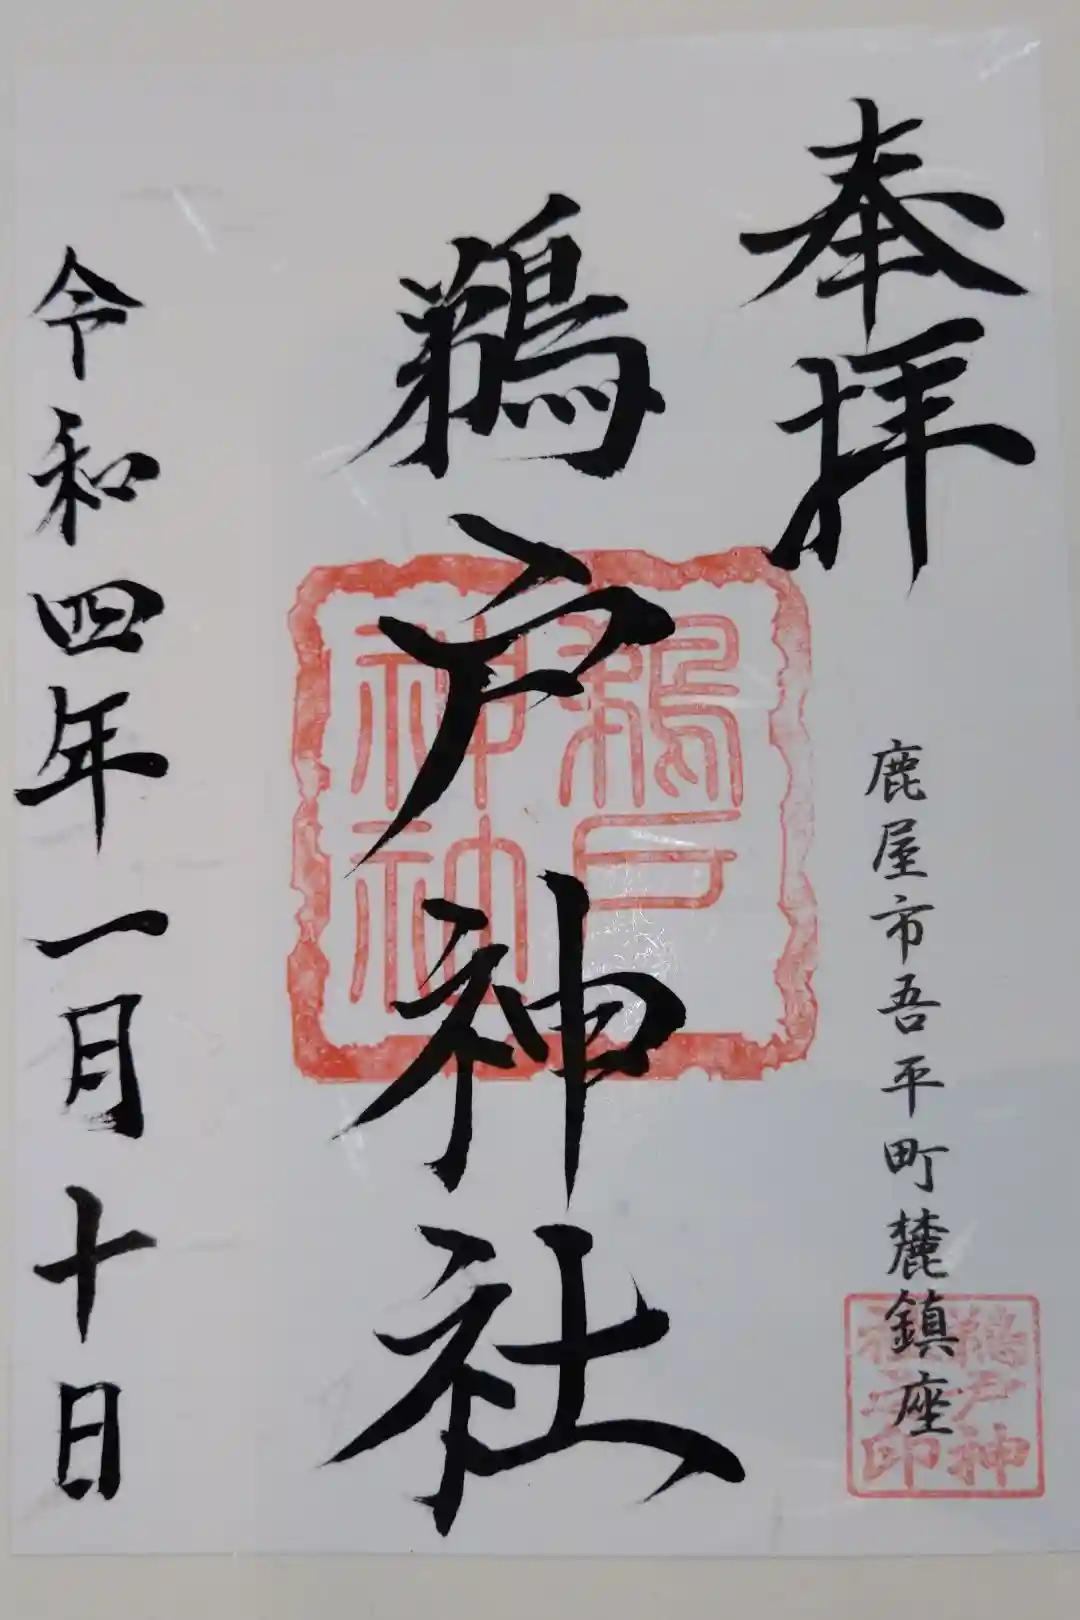 奉拝
鹿屋市吾平町麓鎮座
鵜戸神社
令和四年一月十日
鵜戸
神社
鵜戸神
社之印